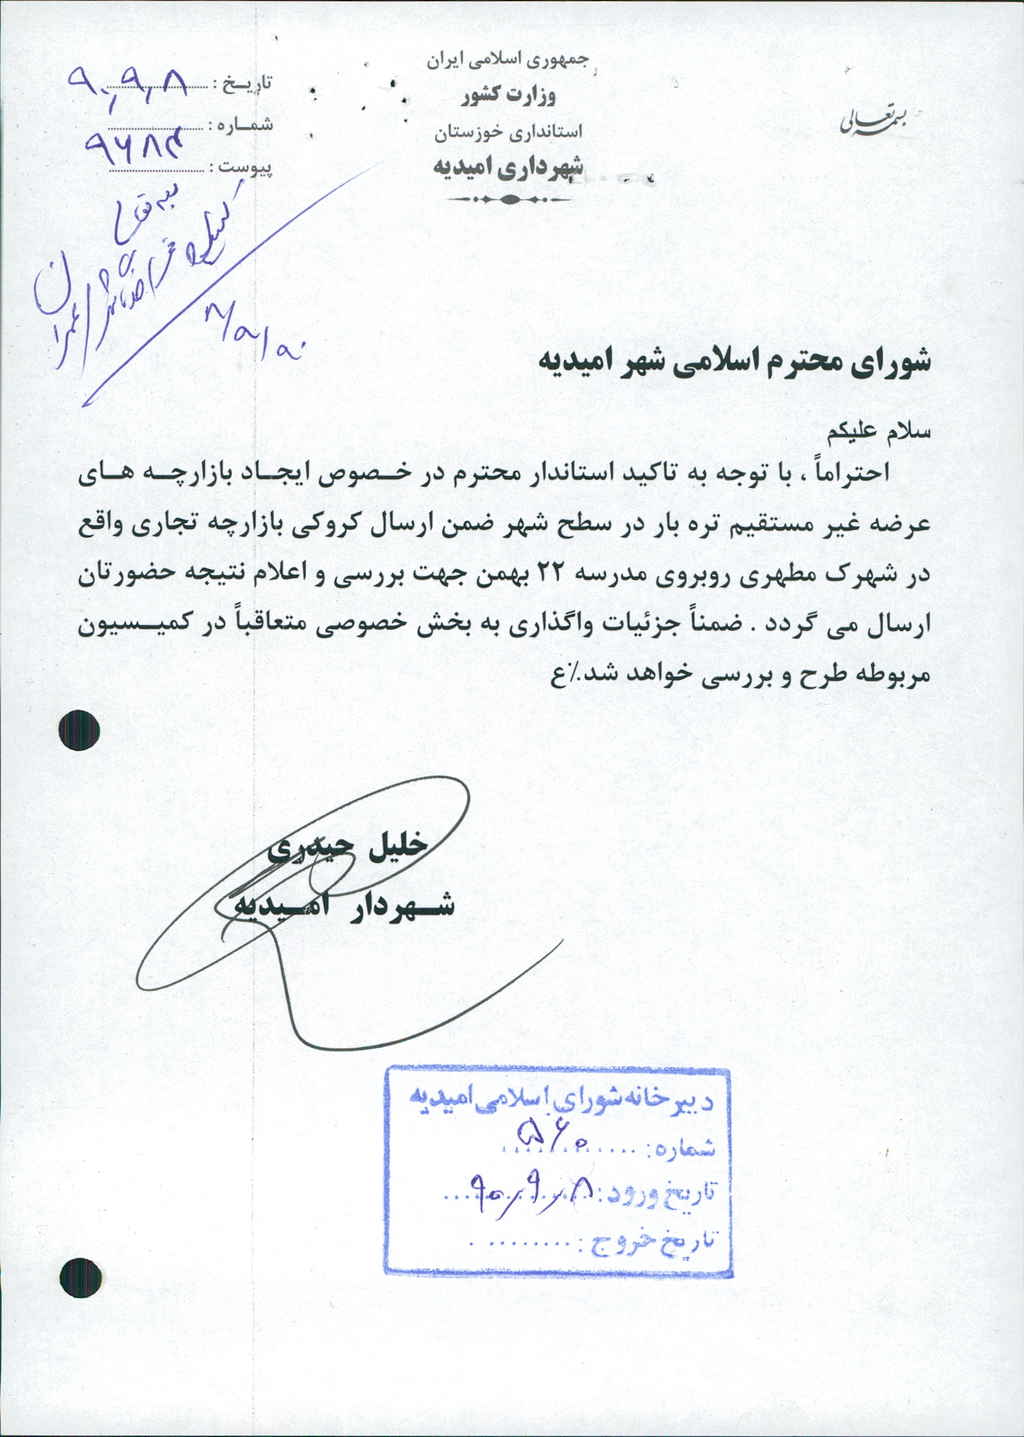 بسمه تعالی
جمهوری اسلامی ایران
وزارت کشور
استانداری خوزستان
شهرداری امیدیه
تاریخ : ۹۰٫۹٫۸
شماره : ۹۶۸۴
پیوست :
۹۰/۹/۸
شورای محترم اسلامی شهر امیدیه
سلام علیکم
احتراماً ، با توجه به تاکید استاندار محترم در خصوص ایجاد بازارچه های
عرضه غیر مستقیم تره بار در سطح شهر ضمن ارسال کروکی بازارچه تجاری واقع
در شهرک مطهری روبروی مدرسه ۲۲ بهمن جهت بررسی و اعلام نتیجه حضورتان
ارسال می گردد . ضمناً جزئیات واگذاری به بخش خصوصی متعاقباً در کمیسیون
مربوطه طرح و بررسی خواهد شد./ع
خلیل حیدری
شهردار امیدیه
دبیرخانه شورای اسلامی امیدیه
شماره: ۵۶۰
تاریخ ورود: ۹۰٫۹٫۸
تاریخ خروج: